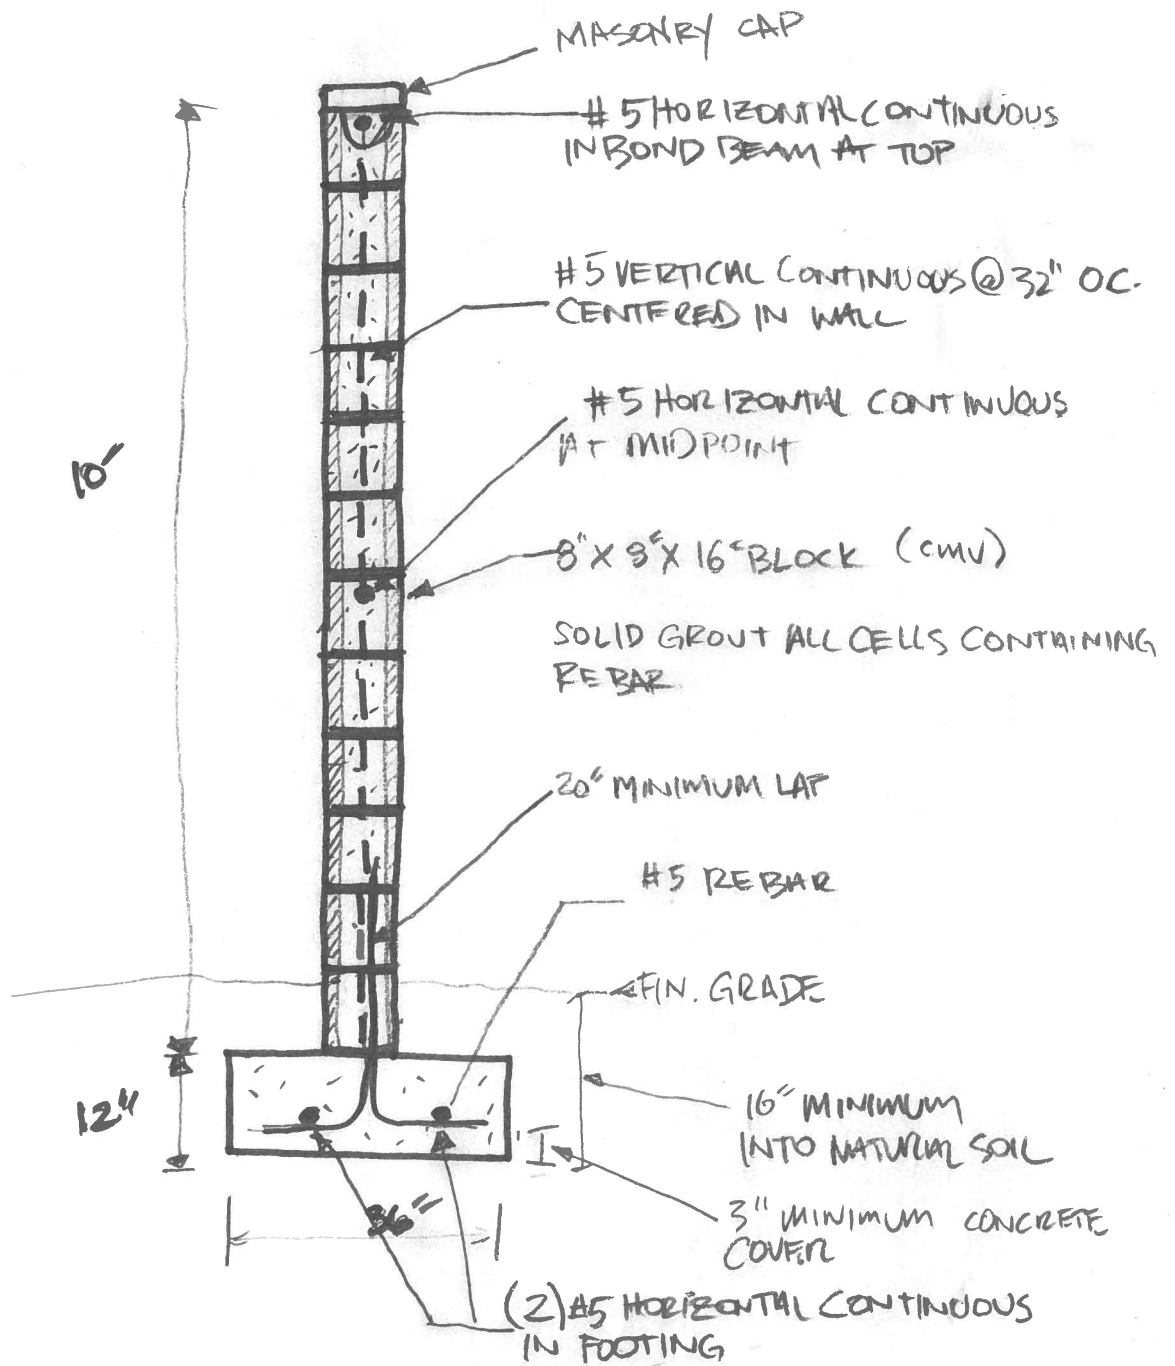 MASONRY CAP
#5 HORIZONTAL CONTINUOUS
IN BOND BEAM AT TOP
#5 VERTICAL CONTINUOUS @ 32" OC.
CENTERED IN WALL
10'
#5 HORIZONTAL CONTINUOUS
AT MIDPOINT
8" X 8" X 16" BLOCK (CMU)
SOLID GROUT ALL CELLS CONTAINING
REBAR
20" MINIMUM LAP
#5 REBAR
FIN. GRADE
12"
16" MINIMUM
INTO NATURAL SOIL
36"
3" MINIMUM CONCRETE
COVER
(2) #5 HORIZONTAL CONTINUOUS
IN FOOTING